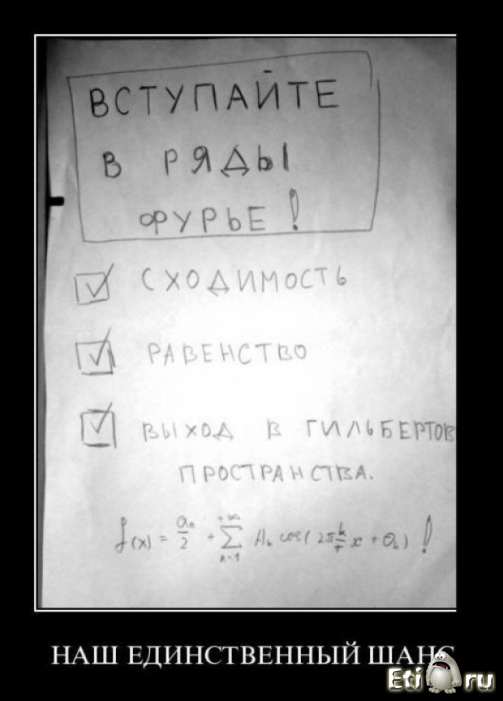 ВСТУПАЙТЕ
В РЯДЫ
ФУРЬЕ!
СХОДИМОСТЬ
РАВЕНСТВО
ВЫХОД В ГИЛЬБЕРТОВ
ПРОСТРАНСТВА.
f(x) = a₀/2 + +∞ ∑ n=1 Aₖ cos(2π k/T x + θₖ) !
НАШ ЕДИНСТВЕННЫЙ ШАНС
Eti ru